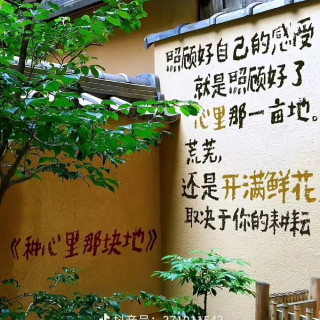 照顾好自己的感受
就是照顾好了
心里那一亩地。
荒芜,
还是开满鲜花
取决于你的耕耘
《种心里那块地》